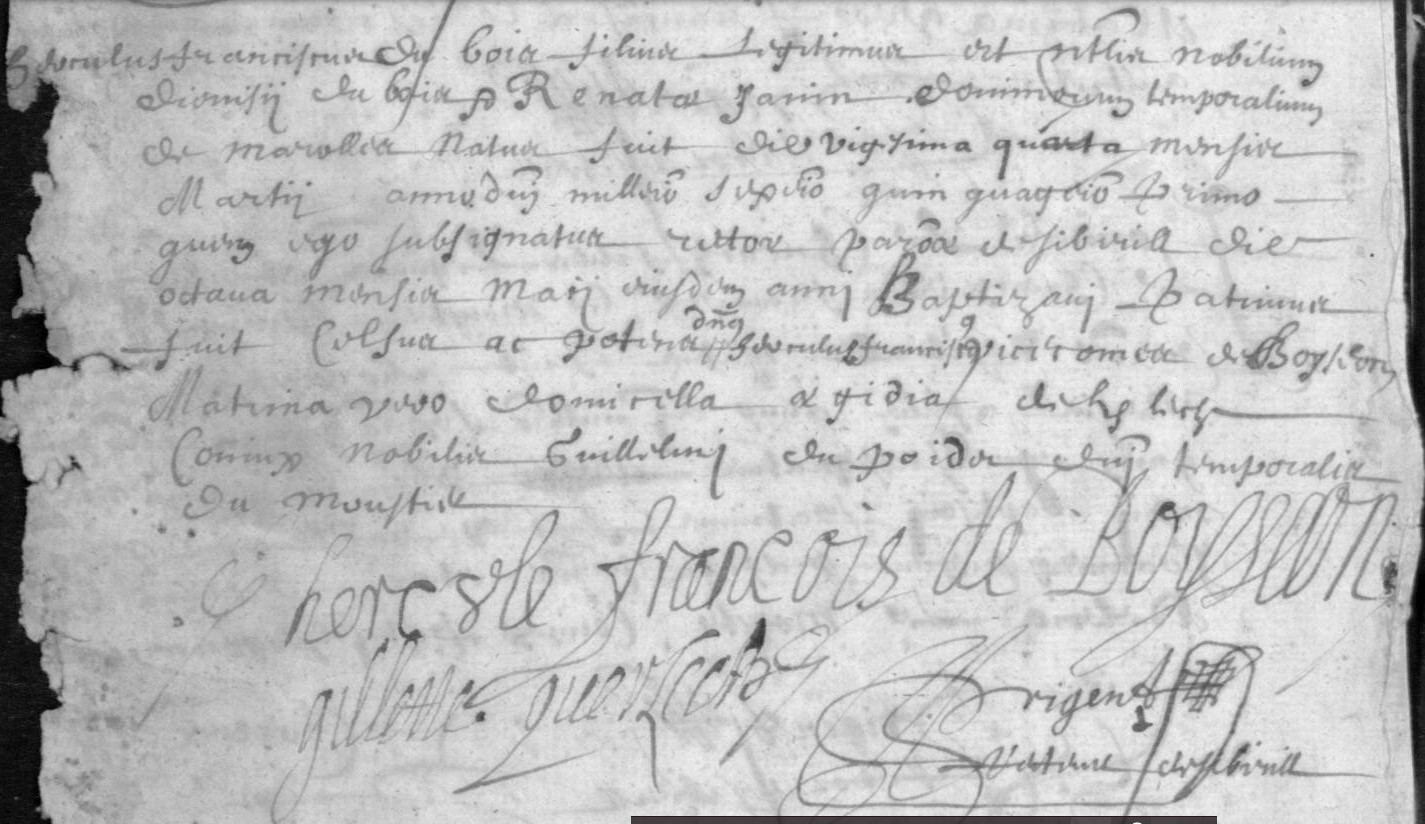 herculus franciscus du bois filius legitimus et ntlis nobilium
dionisij du bois p Renatæ Janin dominorum temporalium
de marolles Natus fuit die vigesima quarta mensis
Martij anno dnj millesio sexcēio quinquagēio primo
quem ego subsignatus rector paroæ de sibirill die
octava mensis Maij eiusdem anni Baptizavi Patrinus
fuit Celsus ac potens dnus herculus francisc9 vicecomes de Boyseon
Matrina vero domicella ægidia de
Coniux nobilis Guillelmj du poides dnj temporalis
du moustier
hercule francois de Boyseon
gillette
rigent
recteur de sibirill